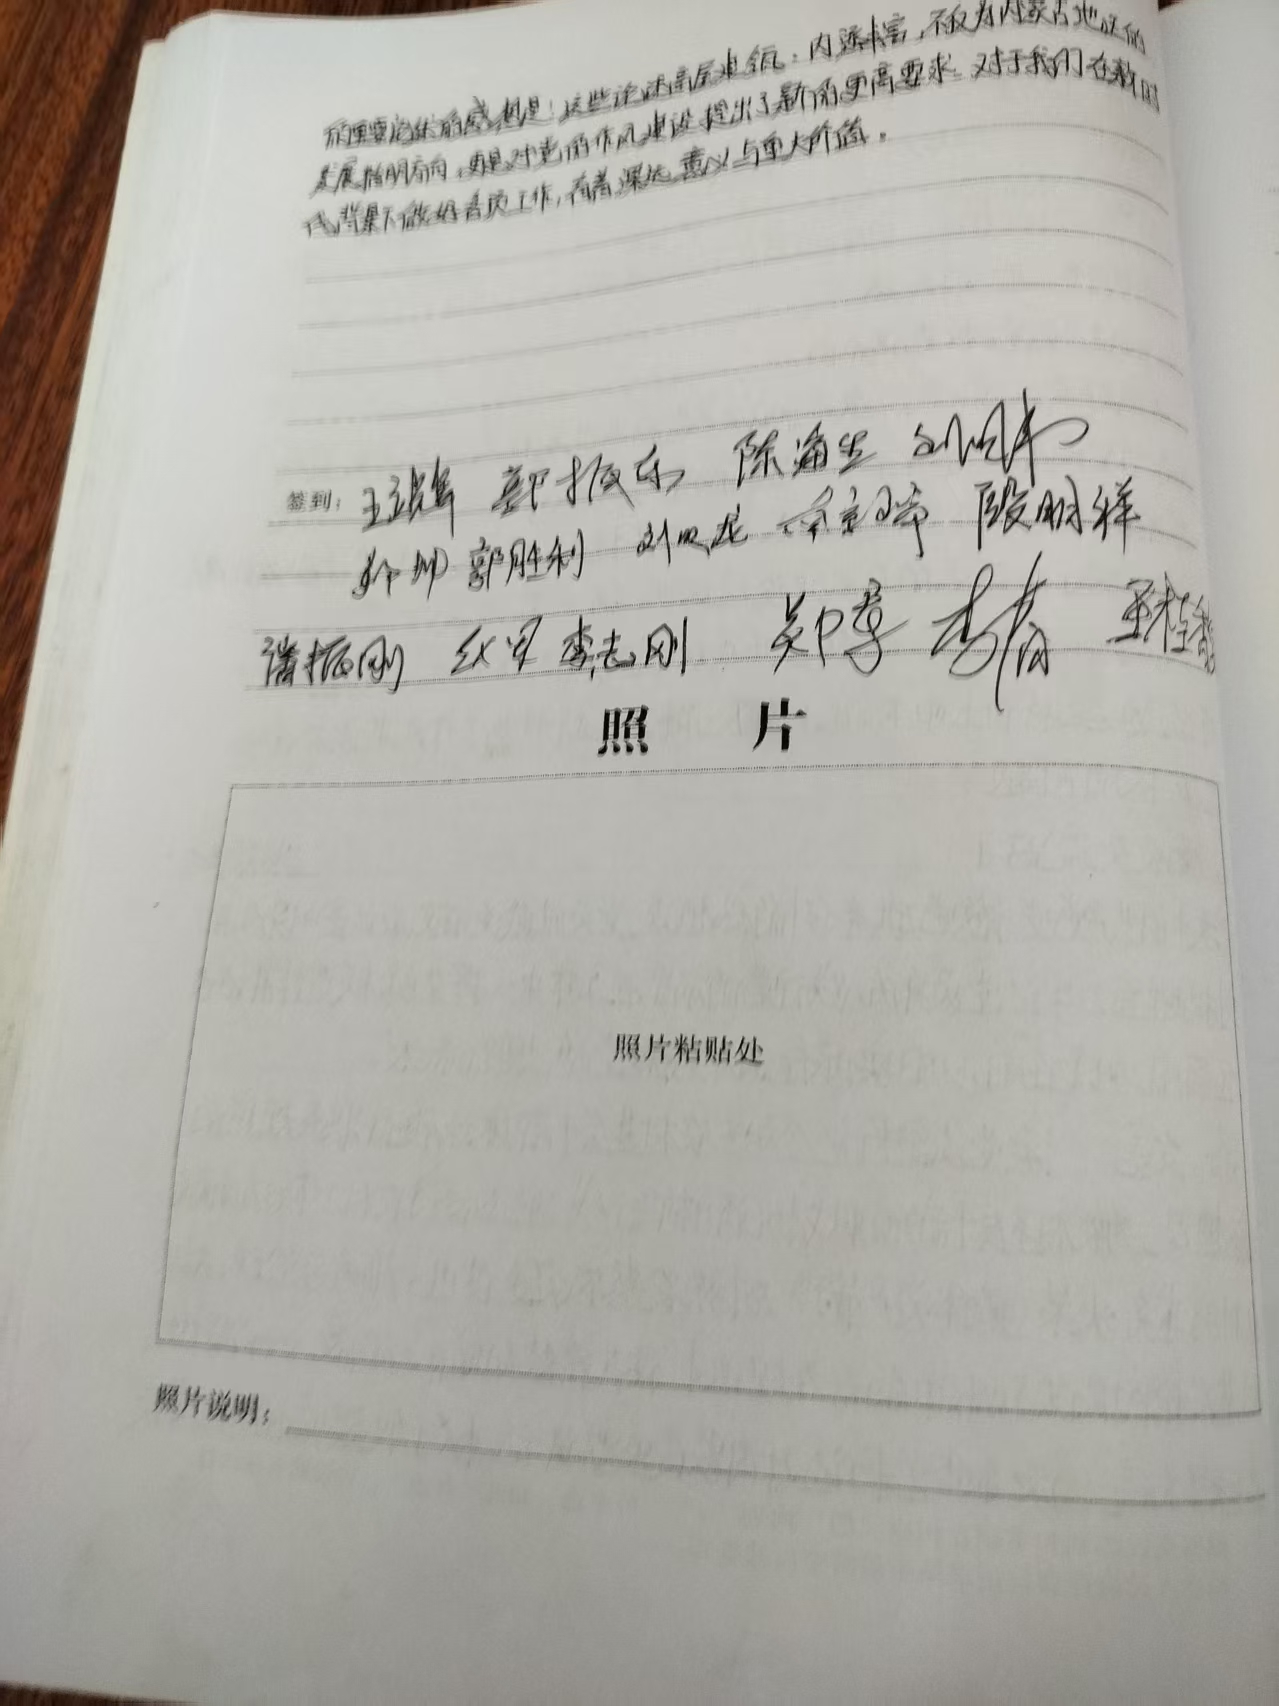 的重要论述的感想是：这些论述高屋建瓴，内涵丰富，不仅为内蒙古地区的
发展指明方向，更是对党的作风建设提出了新的更高要求 对于我们在新时
代背景下做好各项工作，有着深远意义与重大价值。
签到： 郭振乐 陈海生
郭胜利 段明祥
潘振刚 红军 李志刚 郑章 李青 王桂
照 片
照片粘贴处
照片说明：